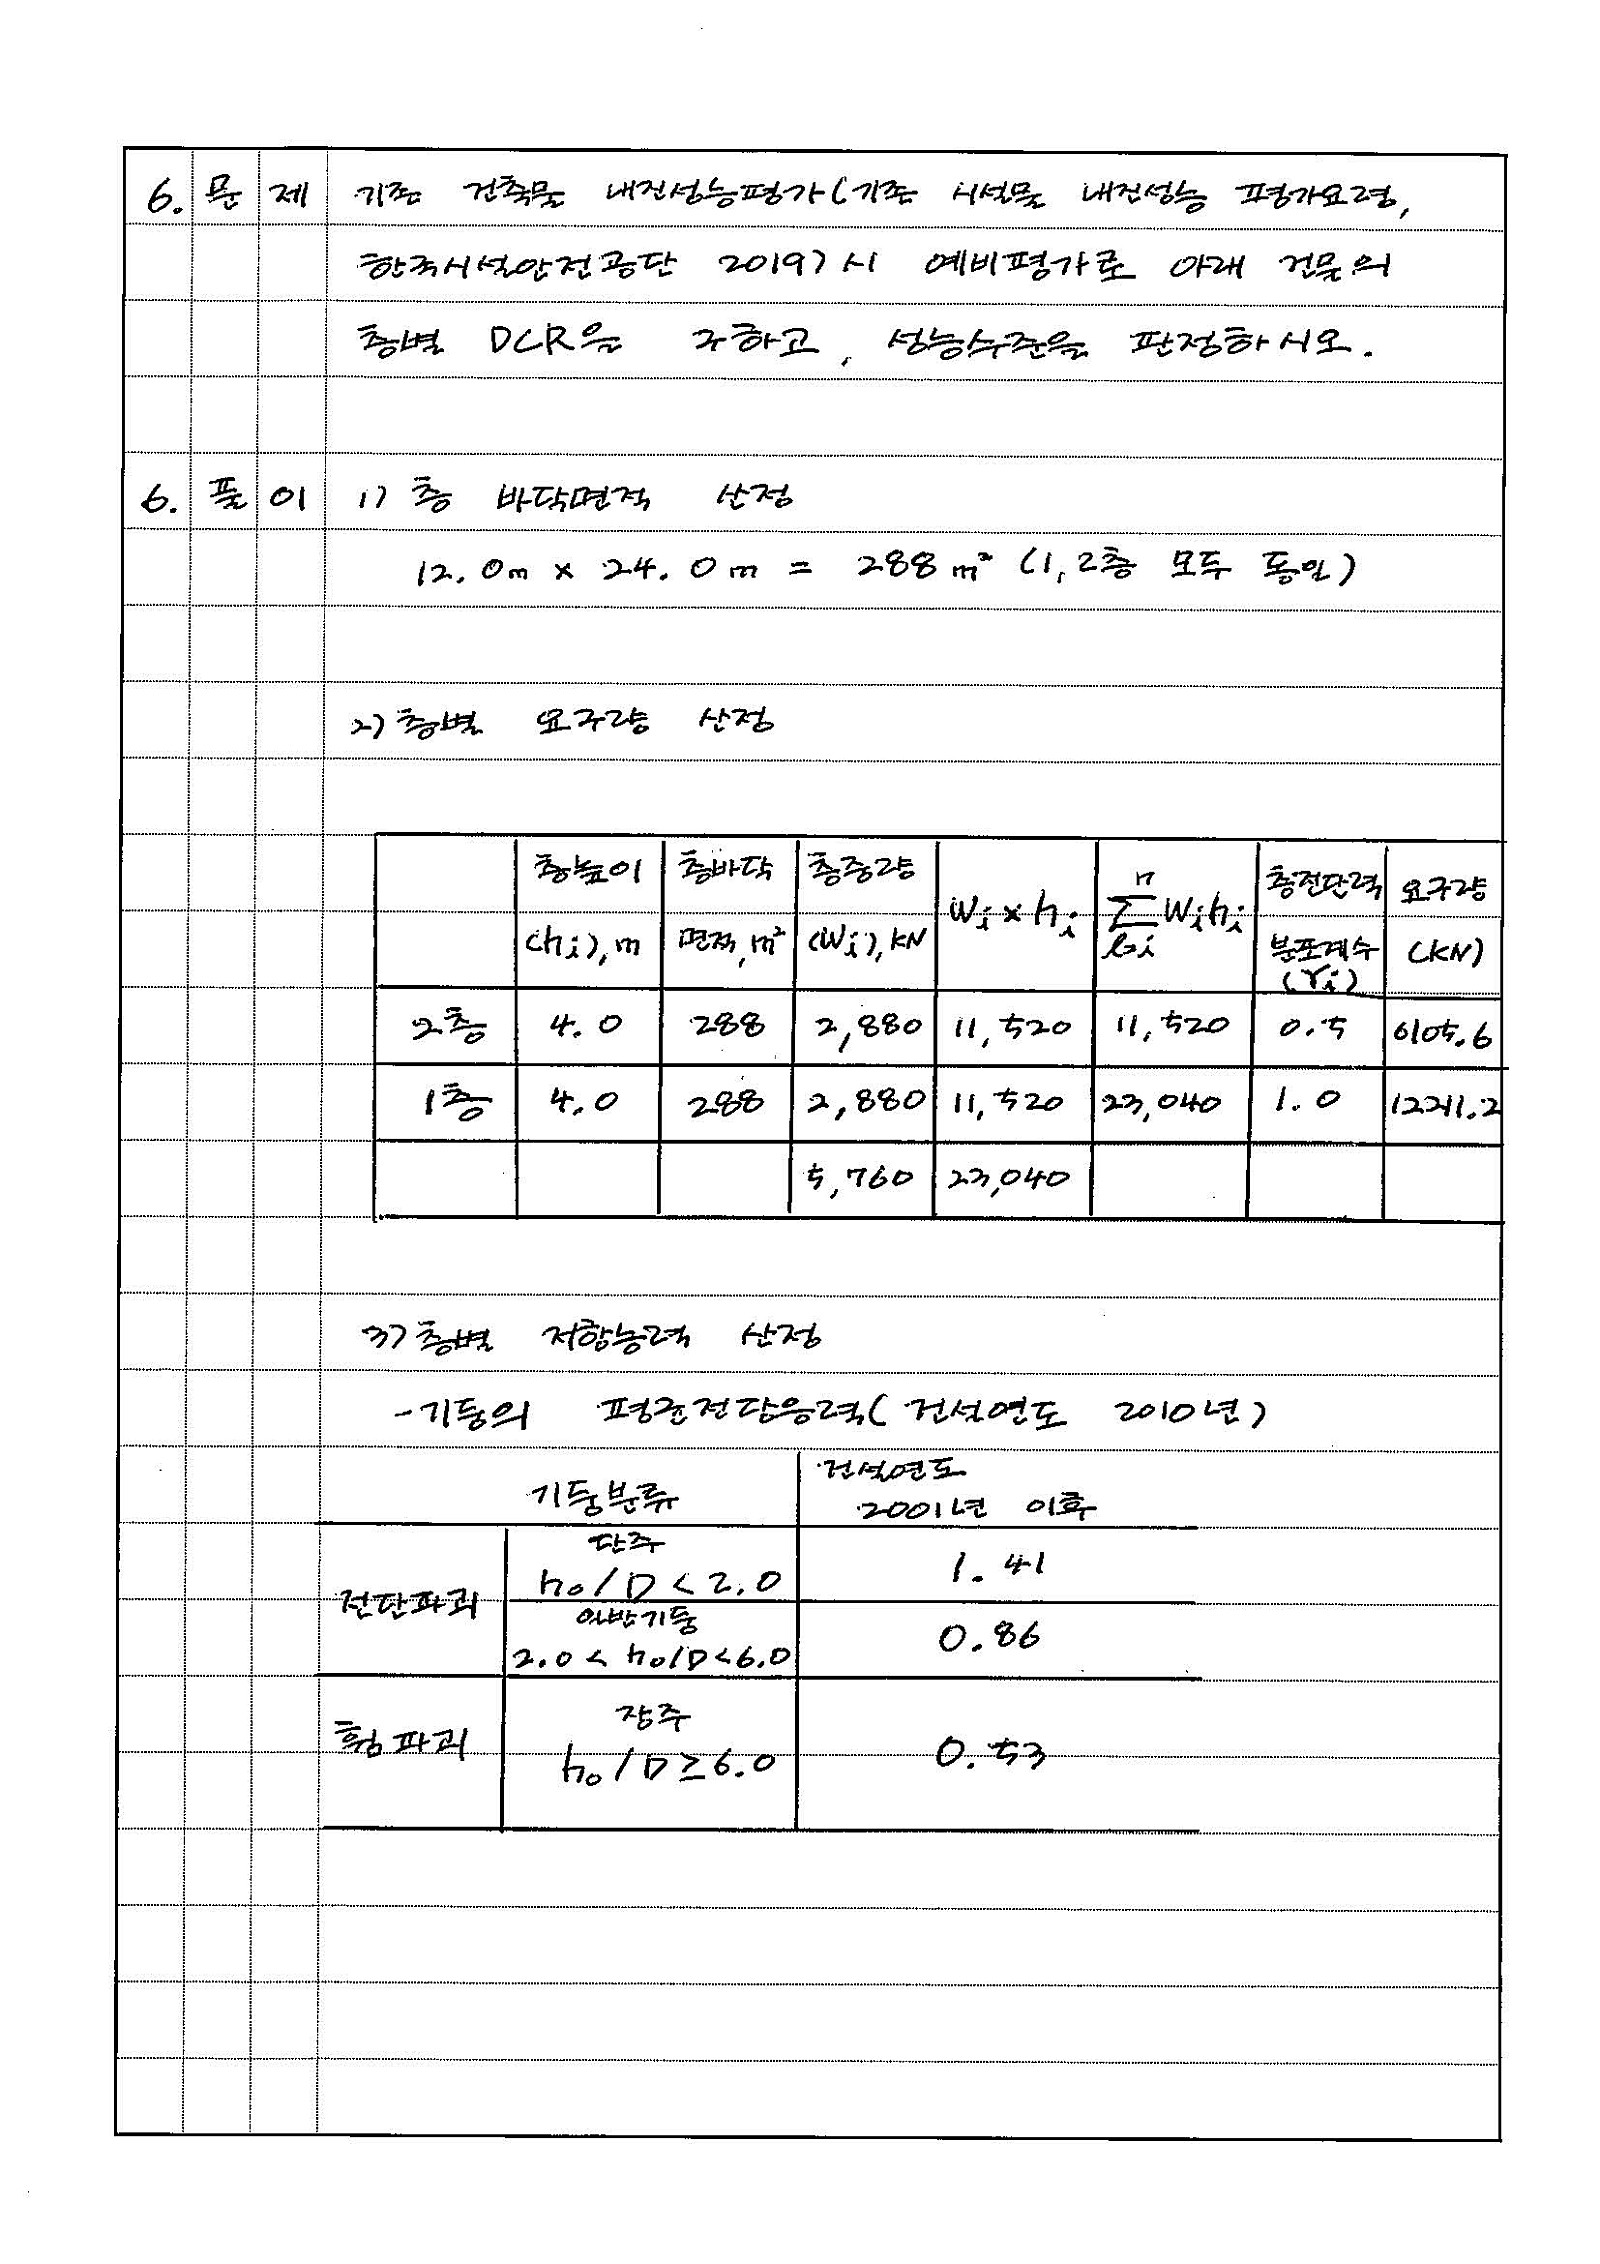 6. 문제 기존 건축물 내진성능평가(기존 시설물 내진성능 평가요령,
한국시설안전공단 2019) 시 예비평가로 아래 건물의
층별 DCR을 구하고, 성능수준을 판정하시오.
6. 풀이 1) 층 바닥면적 산정
12.0m × 24.0m = 288m² (1,2층 모두 동일)
2) 층별 요구량 산정
층높이 (hi),m 층바닥 면적,m² 층중량 (Wi),kN Wi×hi n Σ Wihi 층전단력 분포계수 (γi) 요구량 (kN)
2층 4.0 288 2,880 11,520 11,520 0.5 6105.6
1층 4.0 288 2,880 11,520 23,040 1.0 12211.2
5,760 23,040
3) 층별 저항능력 산정
- 기둥의 평균전단응력(건설연도 2010년)
기둥분류 건설연도 2001년 이후
전단파괴 단주 ho/D < 2.0 1.41
일반기둥 2.0 < ho/D < 6.0 0.86
휨파괴 장주 ho/D ≥ 6.0 0.53